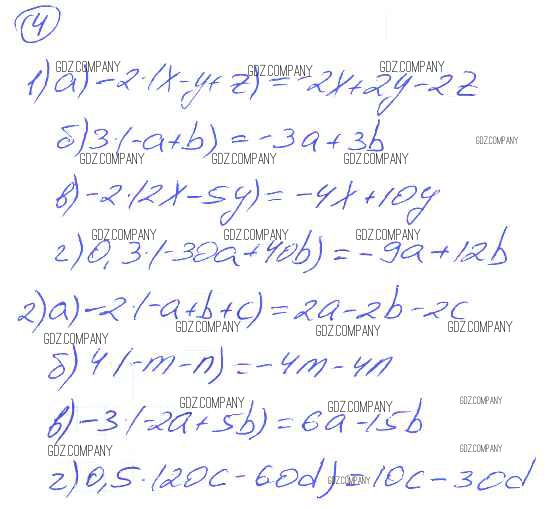 4
GDZ.COMPANY GDZ.COMPANY GDZ.COMPANY
1) а) -2·(x-y+z) = -2x+2y-2z
б) 3·(-a+b) = -3a+3b
GDZ.COMPANY
GDZ.COMPANY GDZ.COMPANY GDZ.COMPANY
в) -2·(2x-5y) = -4x+10y
GDZ.COMPANY GDZ.COMPANY GDZ.COMPANY
г) 0,3·(-30a+40b) = -9a+12b
2) а) -2·(-a+b+c) = 2a-2b-2c
GDZ.COMPANY GDZ.COMPANY GDZ.COMPANY GDZ.COMPANY
б) 4(-m-n) = -4m-4n
GDZ.COMPANY GDZ.COMPANY GDZ.COMPANY
в) -3·(-2a+5b) = 6a-15b
GDZ.COMPANY GDZ.COMPANY
г) 0,5·(20c-60d) = 10c-30d
GDZ.COMPANY